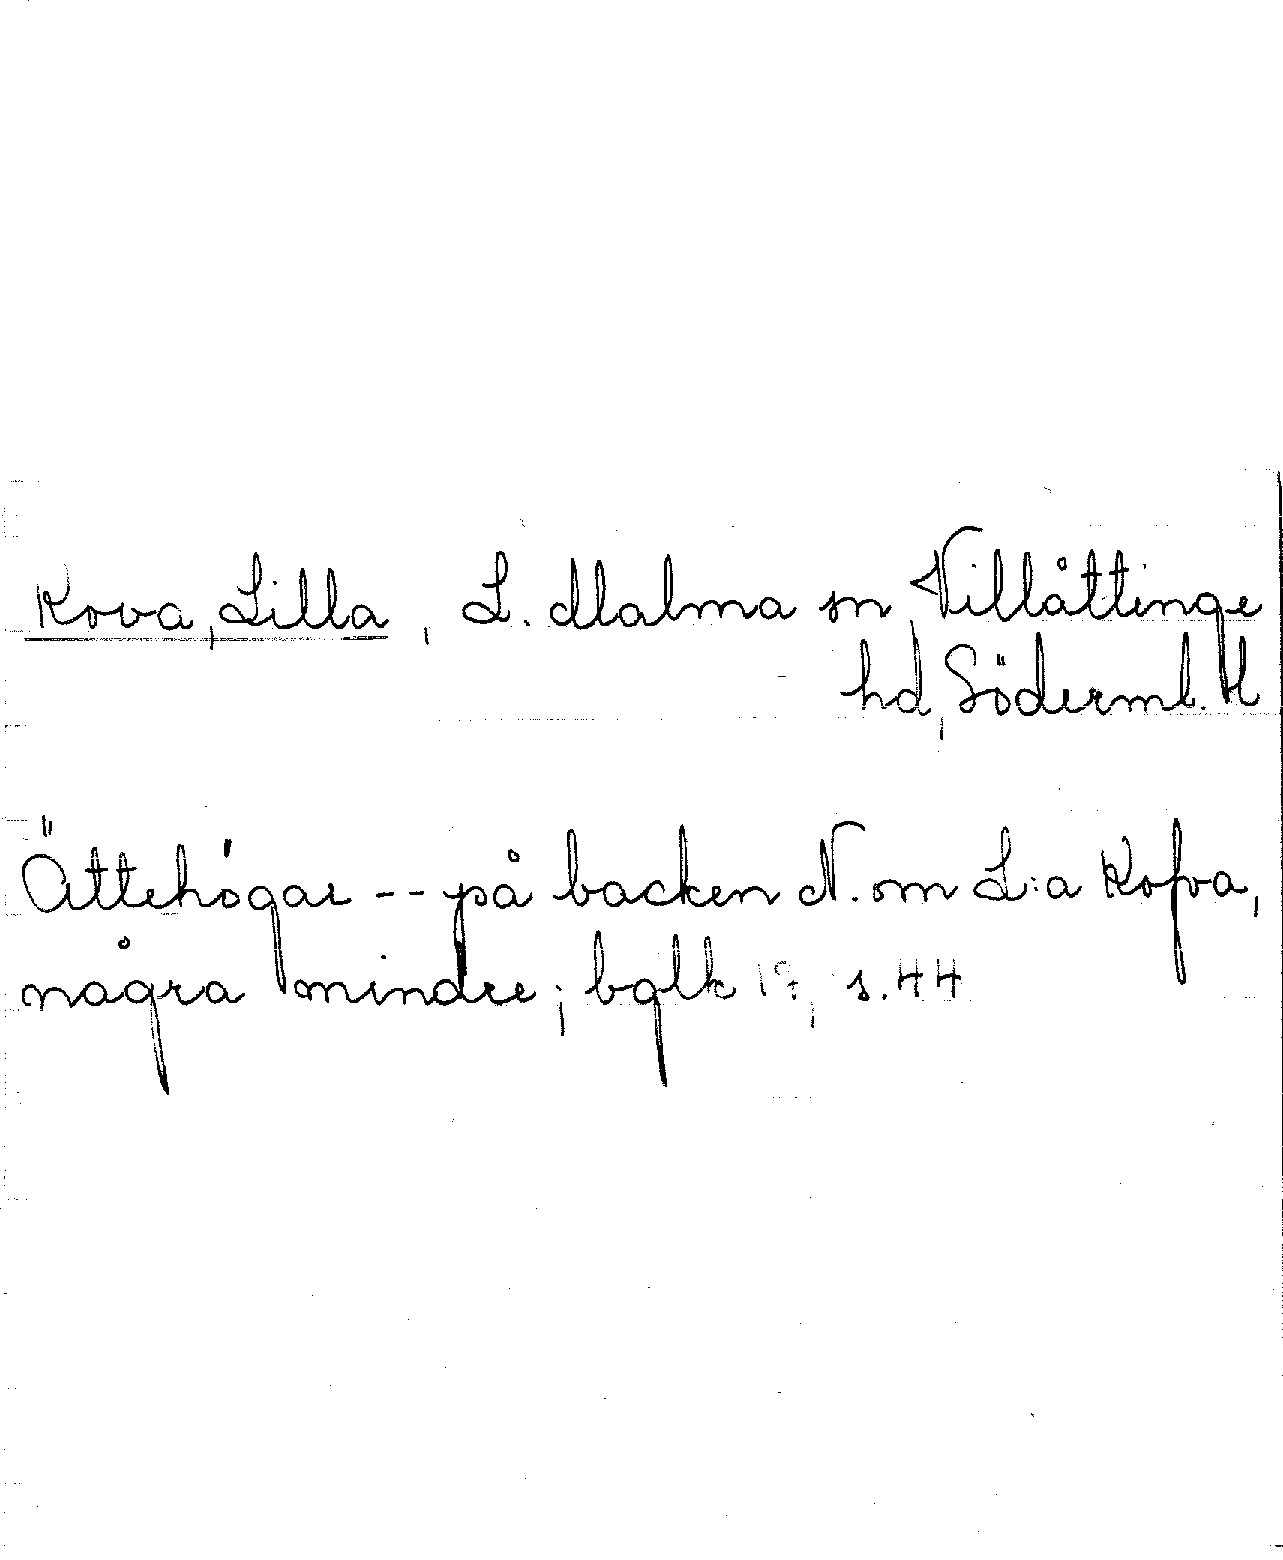 Kova, Lilla, L. Malma sn, Villåttinge
hd, Söderml.
Ättehögar -- på backen N. om L:a Kofva,
några mindre; bglk 17, s. 44